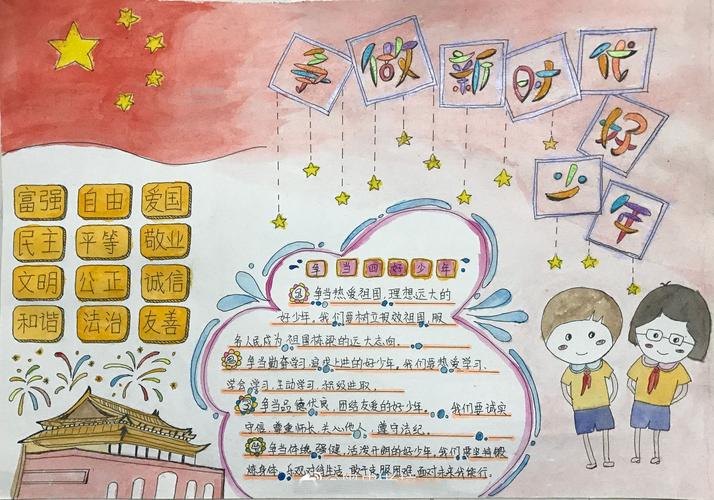 争做新时代
好少年
富强 自由 爱国
民主 平等 敬业
文明 公正 诚信
和谐 法治 友善
争当四好少年
1 争当热爱祖国,理想远大的
好少年,我们要树立报效祖国,服
务人民成为祖国栋梁的远大志向。
2 争当勤奋学习,追求上进的好少年,我们要热爱学习、
学会学习、主动学习、积极进取.
3 争当品德优良,团结友爱的好少年. 我们要诚实
守信、尊重师长、关心他人,遵守法纪.
4 争当体魄强健,活泼开朗的好少年,我们要坚持锻
炼身体、乐观对待生活,敢于克服困难,面对未来我能行.